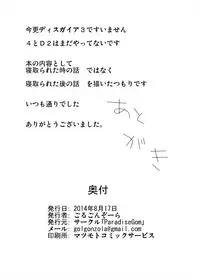 今更ディスガイア3ですいません
4とD2はまだやってないです
本の内容として
寝取られた時の話　ではなく
寝取られた後の話　を描いたつもりです
いつも通りでした
ありがとうございました。
あとがき
奥付
発行日: 2014年8月17日
発行者: ごるごんぞーら
発行元: サークル「ParadiseGom」
メール: golgonzola@gmail.com
印刷所: マツモトコミックサービス